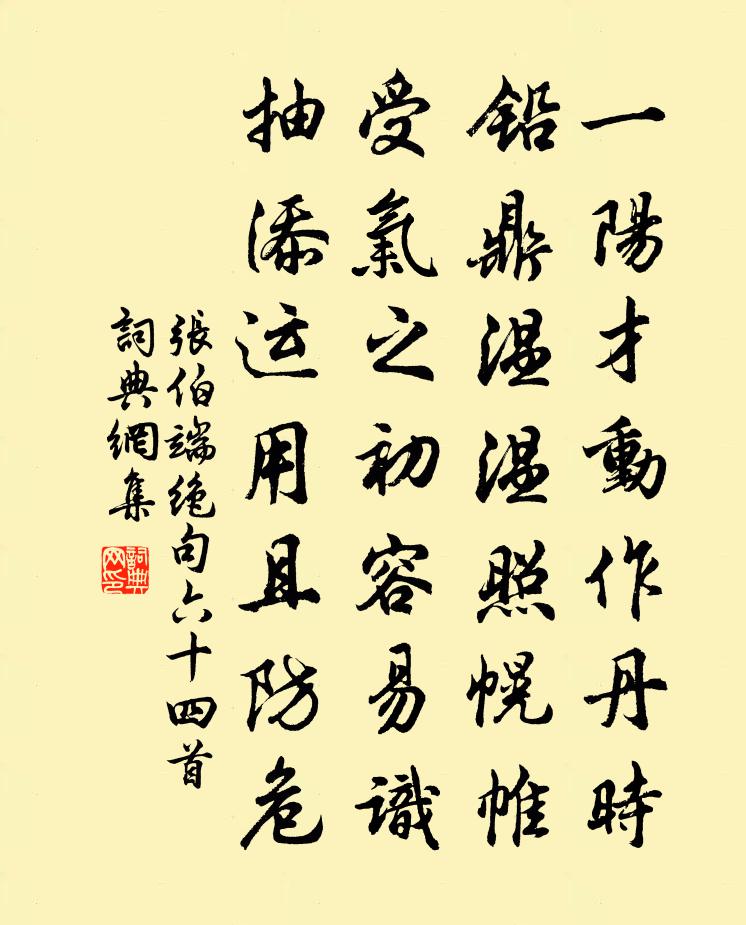 一陽才動作丹時
鉛鼎温温照幌帷
受氣之初容易識
抽添运用且防危
張伯端绝句六十四首
詞典網集
詞典网印